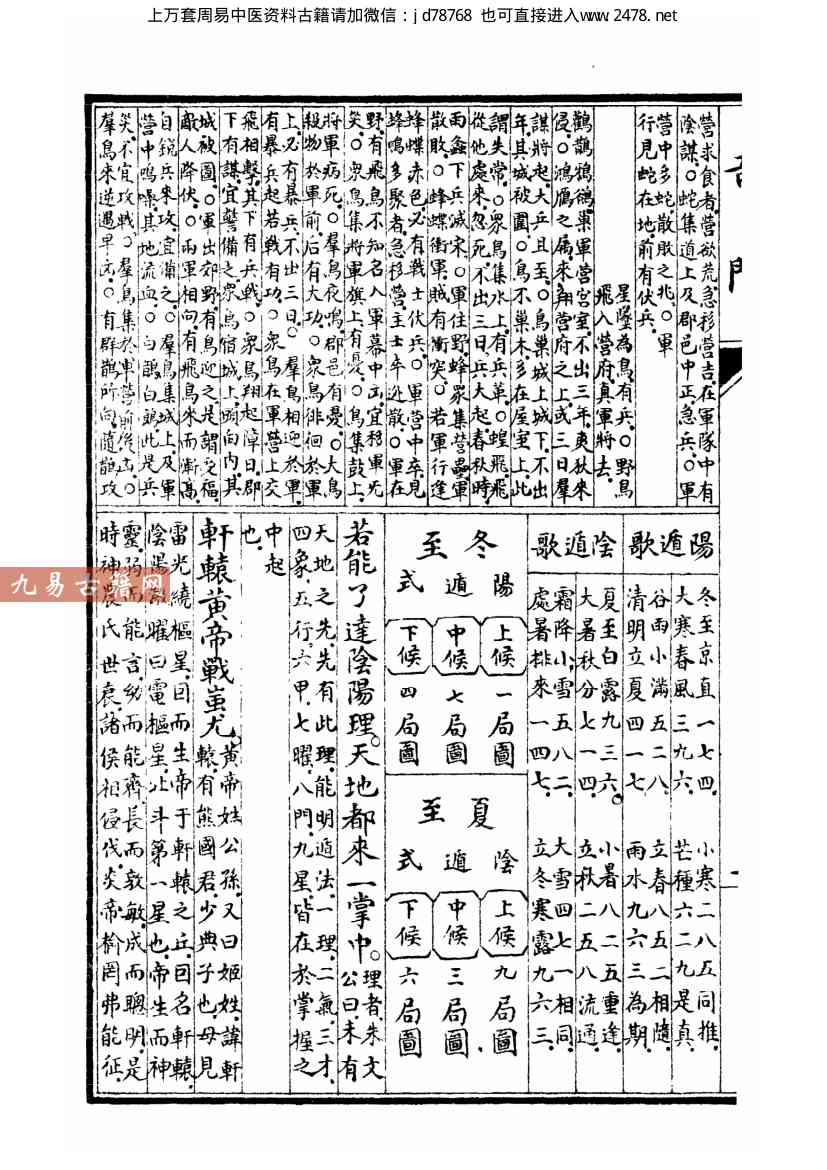 上万套周易中医资料古籍请加微信：jd78768 也可直接进入www.2478.net
營求食者營欲荒急移營吉在軍隊中有
陰謀○蛇集道上及郡邑中正急兵○軍
營中多蛇散敗之兆○軍
行見蛇在地前有伏兵
星墜為鳥有兵○野鳥
飛入營府真軍將去
鸛鵲鴇鵒巢軍營宮室不出三年爽秋來
侵○鴻鴈之屬來翔營府之上或三日羣
謀將起大兵且至○鳥巢城上城下不出
年其城被圍○鳥不巢木多在屋室上此
謂失常○衆鳥集水上有兵革○蝗飛飛
從他處來忽死不出三日兵大起春秋時
雨螽下兵滅宋○軍住野蜂衆集營壘軍
散敗○蜂蝶衝軍賊有衝突○若軍行逢
蜂蝶赤色必有戰士伏兵○軍營中卒見
蜂鳴多聚者急移營主士卒逃散○軍在
野有飛鳥不知名入軍幕中凶宜移軍
○衆鳥集將軍旗上有憂○鳥集鼓上
將軍病死○羣鳥夜鳴郡邑有憂○大鳥
殺物於軍前后有大功○衆鳥徘徊於軍
上必有暴兵不出三日○羣鳥相迎於軍
有暴兵起若戰有功○衆鳥在軍營上交
飛相擊其下有兵戰○衆鳥翔起障日郡
下有謀宜警備之衆鳥宿城上頭向內其
城被圍○軍出郊野有鳥迎之是謂受福
敵人降伏○兩軍相向有飛鳥來而漸高
自銳兵來攻宜備之○羣鳥集城上及軍
營中鳴噪其地流血○白此是兵
災不宜攻戰○羣鳥集於軍營前後凶○
羣鳥來逆遇早○有群鵲所向隨鵲攻
陽遁歌
冬至京直一七四 小寒二八五同推
大寒春風三九六 芒種六二九是真
谷雨小滿五二八 立春八五二相隨
清明立夏四一七 雨水九六三為期
陰遁歌
夏至白露九三六 小暑八二五重逢
大暑秋分七一四 立秋二五八流通
霜降小雪五八二 大雪四七一相同
處暑排來一四七 立冬寒露九六三
冬至
陽遁式
上候 一局圖
中候 七局圖
下候 四局圖
夏至
陰遁式
上候 九局圖
中候 三局圖
下候 六局圖
若能了達陰陽理。天地都來一掌中。理者朱文
公曰未有
天地之先先有此理能明遁法一理二氣三才
四象五行六甲七曜八門九星皆在於掌握之
中起
也
軒轅黃帝戰蚩尤黃帝姓公孫又曰姬姓諱軒
轅有熊國君少典子也母見
雷光繞樞星因而生帝于軒轅之丘因名軒轅
陰陽曜曰電樞星北斗第一星也帝生而神
靈弱而能言幼而能齊長而敦敏成而聰明是
時神農氏世衰諸侯相侵伐炎帝榆罔弗能征
九易古籍网